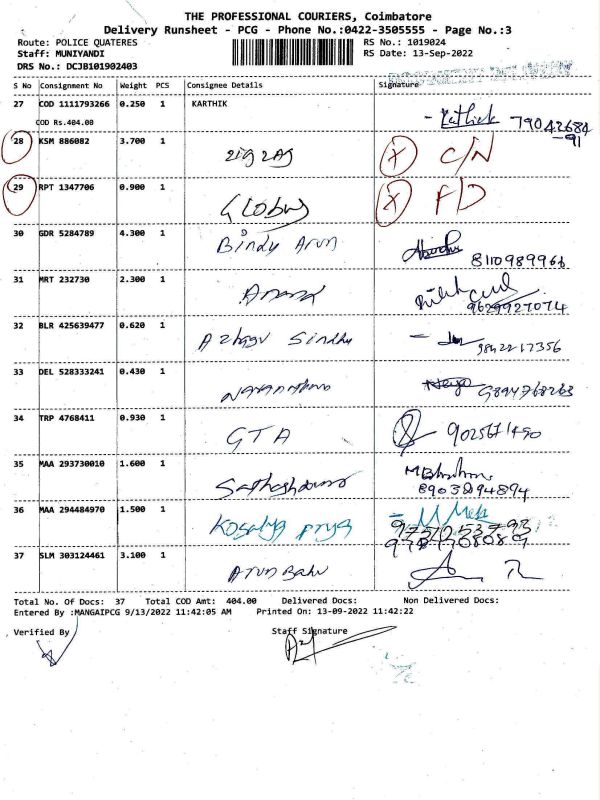 THE PROFESSIONAL COURIERS, Coimbatore
Delivery Runsheet - PCG - Phone No.:0422-3505555 - Page No.:3
Route: POLICE QUATERES RS No.: 1019024
Staff: MUNIYANDI RS Date: 13-Sep-2022
DRS No.: DCJB101902403
S No Consignment No Weight PCS Consignee Details Signature
27 COD 1111793266 0.250 1 KARTHIK
COD Rs.404.00 Kathick 79042684
-91
28 KSM 886082 3.700 1 zig zag X C/N
29 RPT 1347706 0.900 1 Globus X F/D
30 GDR 5284789 4.300 1 Bindy Arun
8110989966
31 MRT 232730 2.300 1 Anand
9629927074
32 BLR 425639477 0.620 1 Azhagu Sindhu
9842217356
33 DEL 528333241 0.430 1
9894768263
34 TRP 4768411 0.930 1 GTA
35 MAA 293730010 1.600 1
36 MAA 294484970 1.500 1 Kosalya priya
37 SLM 303124461 3.100 1 Arun Babu
Total No. Of Docs: 37 Total COD Amt: 404.00 Delivered Docs: Non Delivered Docs:
Entered By :MANGAIPCG 9/13/2022 11:42:05 AM Printed On: 13-09-2022 11:42:22
Verified By Staff Signature